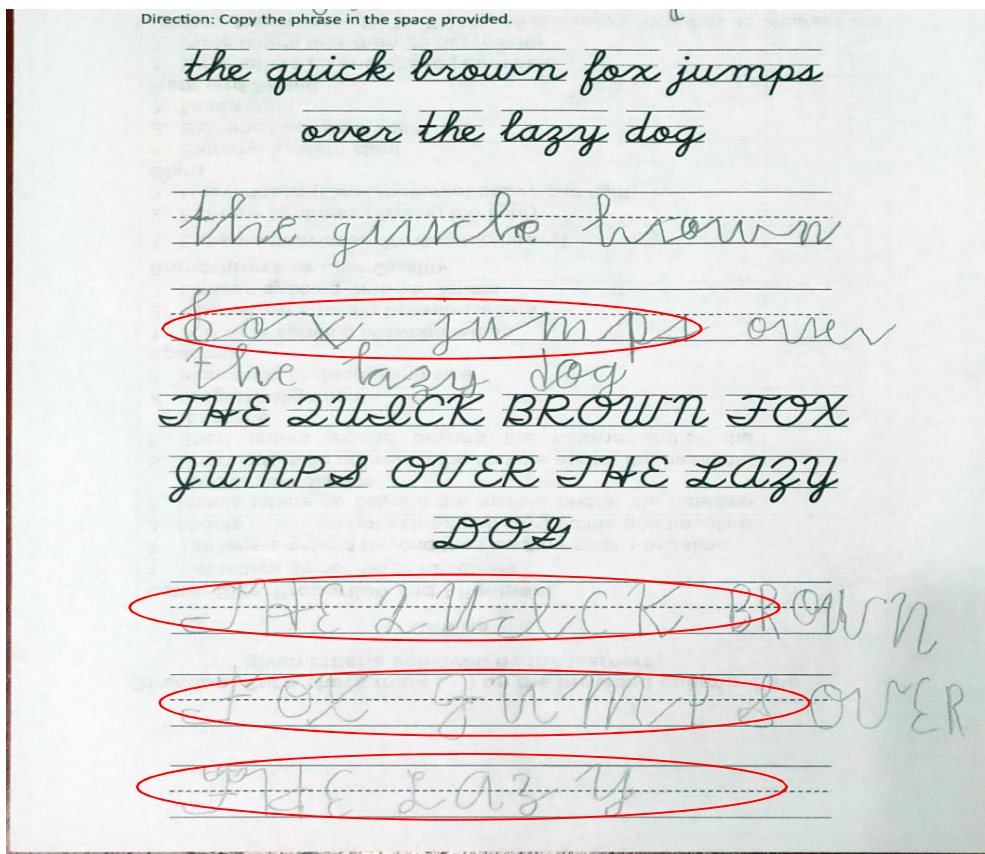 Direction: Copy the phrase in the space provided.
the quick brown fox jumps
over the lazy dog
the quicke brown
fox jumps over
the lazy dog
THE QUICK BROWN FOX
JUMPS OVER THE LAZY
DOG
THE QUICK BROWN
FOX JUMPS OVER
THE LAZY